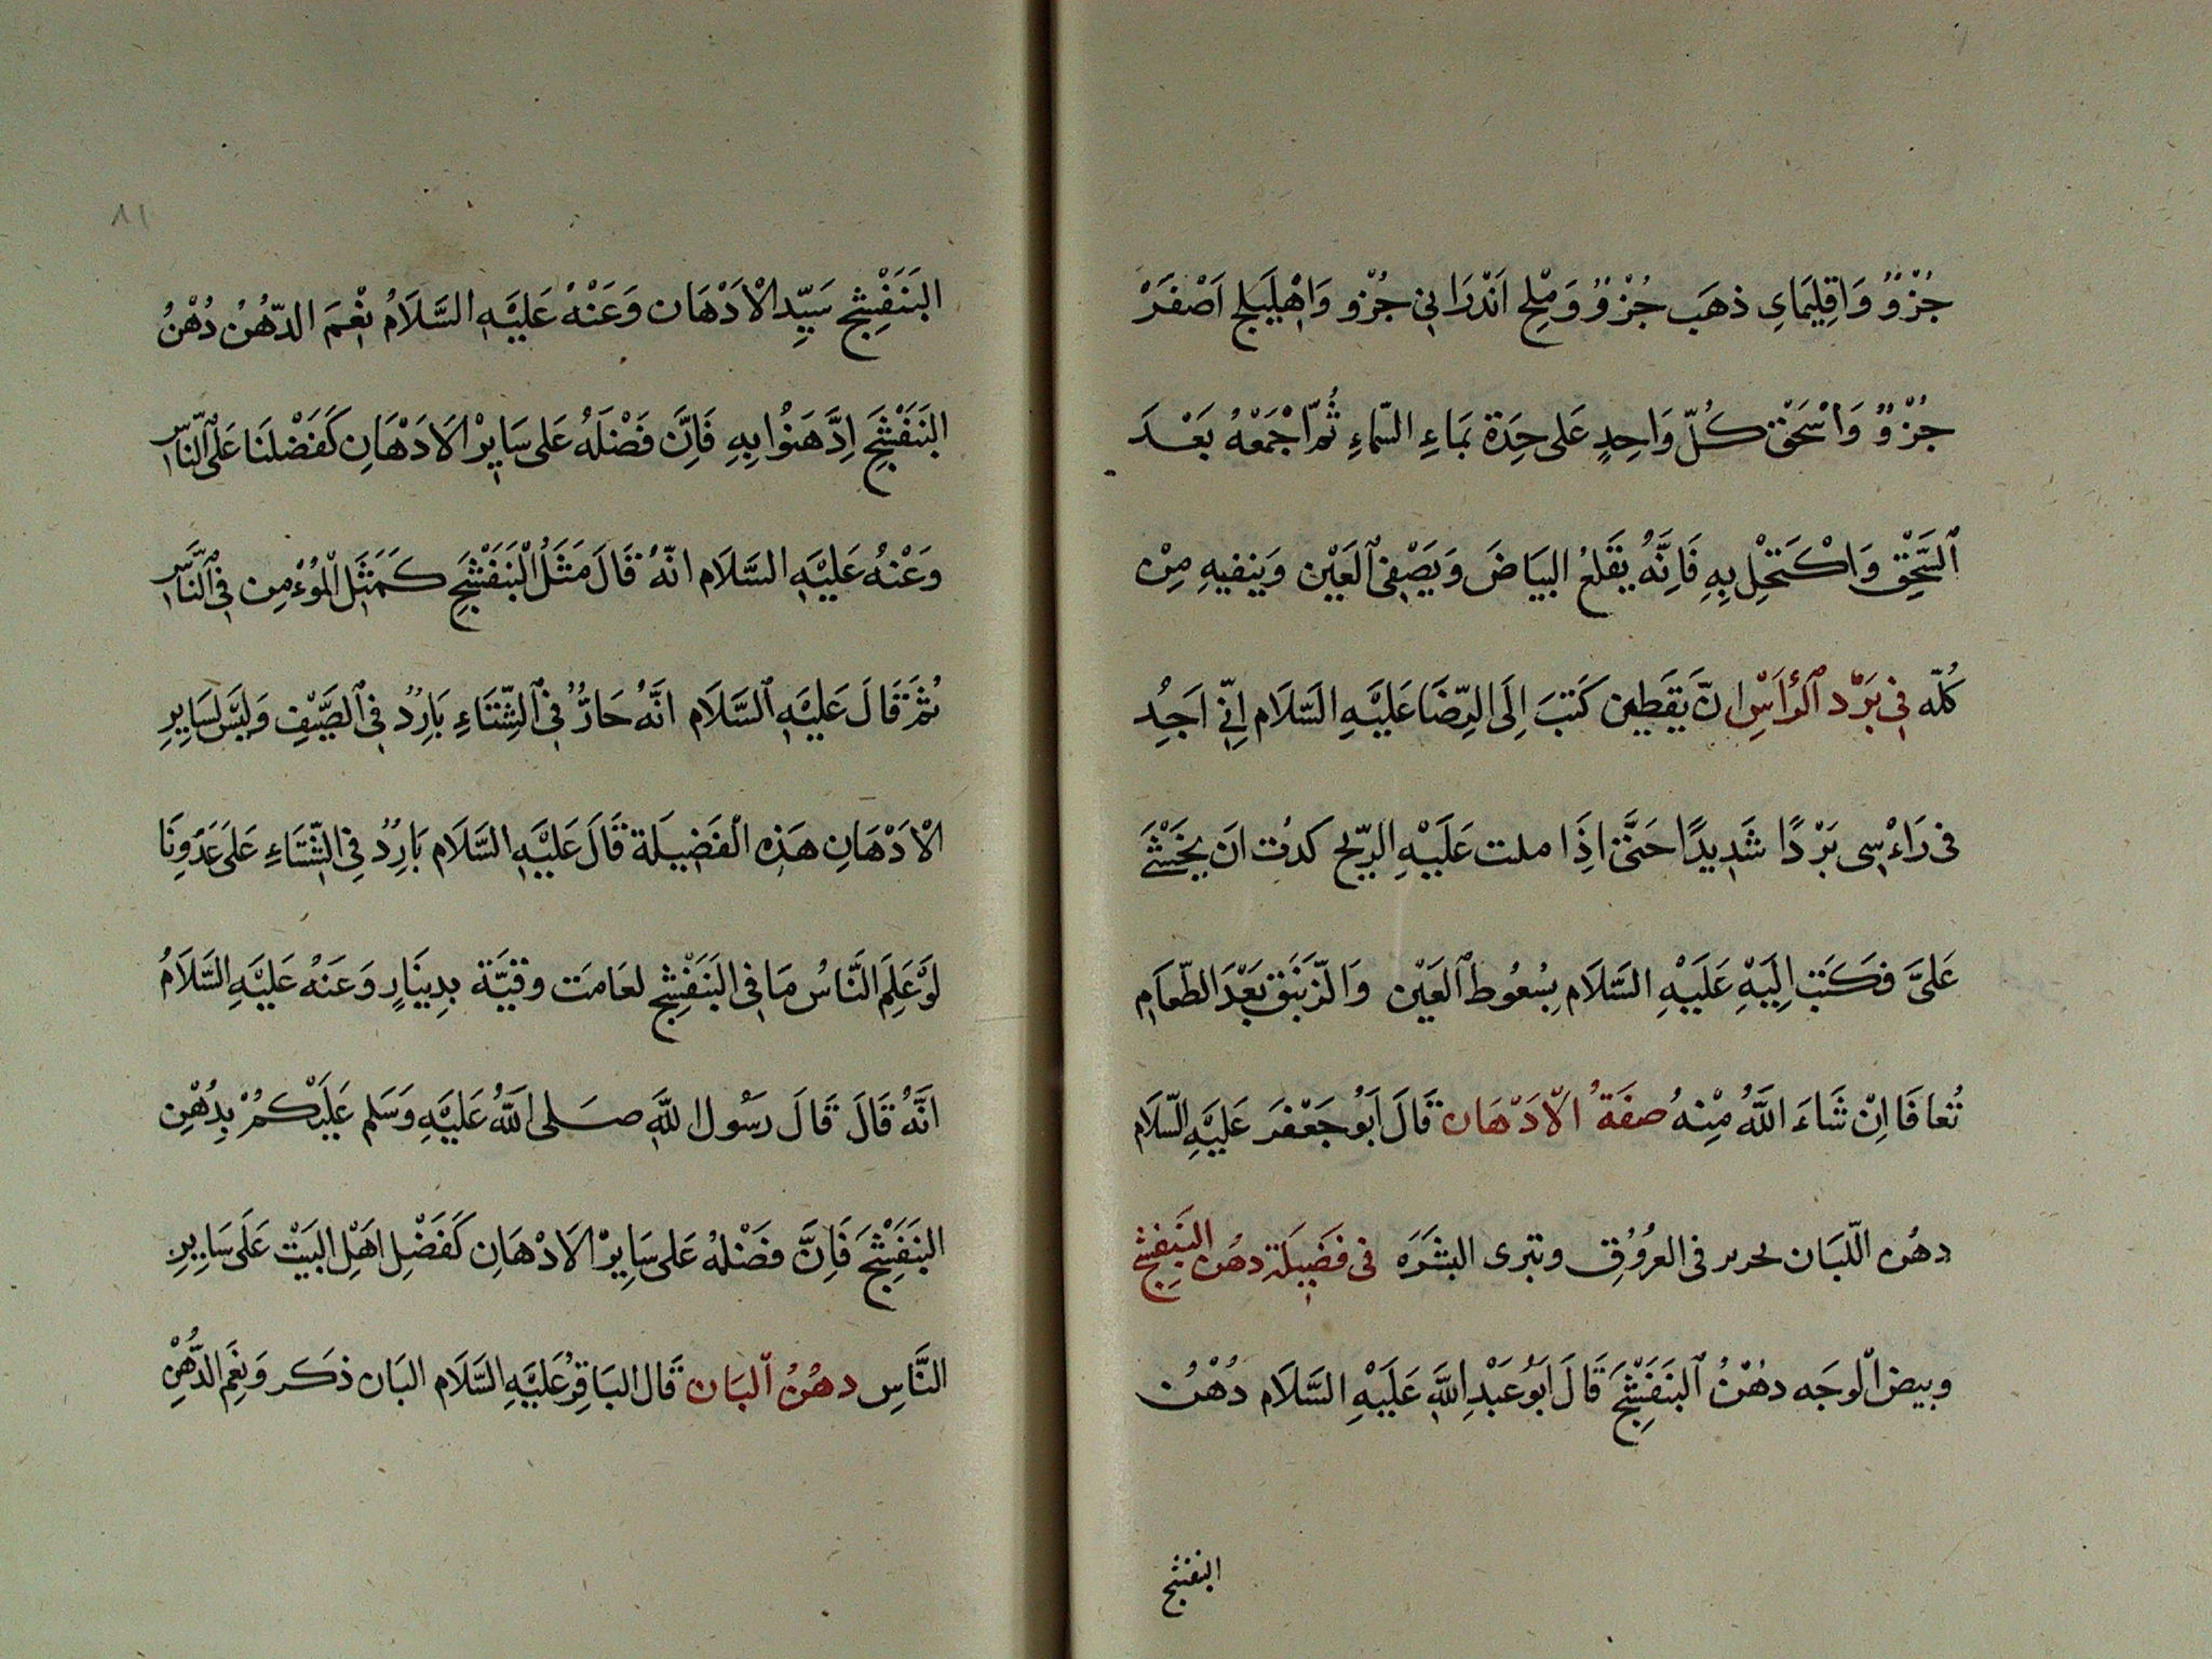 جُزْوٌ وَاقِلِيمَايِ ذهَب جُزْوٌ وَمِلْح اَنْدَرَانِي جُزْو وَاِهْلِيَلج اَصْفَرْ
جُزْوٌ وَاسْحَقْ كُلّ وَاحِدٍ عَلى حِدَة بمَاءِ السّماءِ ثُمّ اجْمَعْهُ بَعْدَ
السَّحْقِ وَاكْتَحِلْ بِهِ فَاِنَّهُ يَقلعُ البيَاضَ وَيَصْفِي العَيْن وَينفيهِ مِنْ
كُلّه في بَرْد الرأسِ انّ يَقطِين كَتبَ اِلَى الرِّضَا عَليْهِ السَّلَام اِنّي اَجِدُ
في رَاءْسِى بَرْدًا شَدِيدًا حَتَّى اِذَا ملت عَلَيْهِ الرّيح كدت اَن يخشَى
عَلىَّ فكَتَب اِلَيْهِ عَلَيْهِ السَّلَام بِسُعُوط العَيْن وَالزّنبَق بَعْدَ الطّعَامِ
تُعافَا اِنْ شَاءَ اللَّهُ مِنْهُ صفَةُ الاَدْهَان قَالَ اَبُو جَعْفَر عَلَيْهِ السّلَام
دهُن اللّبَان في العرُوُقِ وتبرى البشَرَه في فَضِيلَة دهُن البَنَفسَج
وبيض الوجَه دهْنُ البَنَفْسَج قَالَ اَبُو عَبْدِ اللَّهِ عَلَيْهِ السَّلَام دُهْن
البنفسج
٨١
البَنَفْسِج سَيّد الاَدْهَان وَعَنْهُ عَلَيْهِ السَّلَامُ نِعْمَ الدّهُنُ دُهْنُ
البَنَفْسَج اِدَّهَنُوا بِهِ فَاِنَّ فَضْلَهُ عَلى سَايِرْ الاَدْهَانِ كَفَضْلنَا عَلَى النَّاس
وَعَنْهُ عَليْهِ السَّلَام انّهُ قَالَ مَثَلُ البَنَفْسَج كَمَثَل المُوُءْمِن في النَّاس
ثمَّ قَالَ عَليْهِ السَّلَام انَّهُ حَارٌّ في الشِّتَاءِ بَارِدٌ في الصَّيْفِ وَليَسَ لسَايِرِ
الاَدْهَانِ هَذِهِ الفَضِيلَة قَالَ عَلَيْهِ السَّلَام بَارِدٌ فِي الشّتَاءِ عَلَى عَدَوِنَا
لَوْ عَلِمَ النَّاسُ مَا في البَنَفْسِج لعَامَت وقيَّة بدِينَارٍ وَعَنهُ عَليْهِ السَّلَامُ
انَّهُ قَالَ قَالَ رَسُول اللَّهِ صَلى اللَّهُ عَليْهِ وَسَلم عَليَكُمْ بِدُهْنِ
البَنَفْسَج فَاِنَّ فضَْلهُ عَلى سَايِرْ الاَدْهَانِ كَفَضْلِ اَهْلِ البَيْت عَلَى سَايِرِ
النَّاسِ دهُنُ البَان قَال البَاقِرُ عَليْهِ السَّلَام البَان ذكَر وَنِعْم الدُّهْنِ